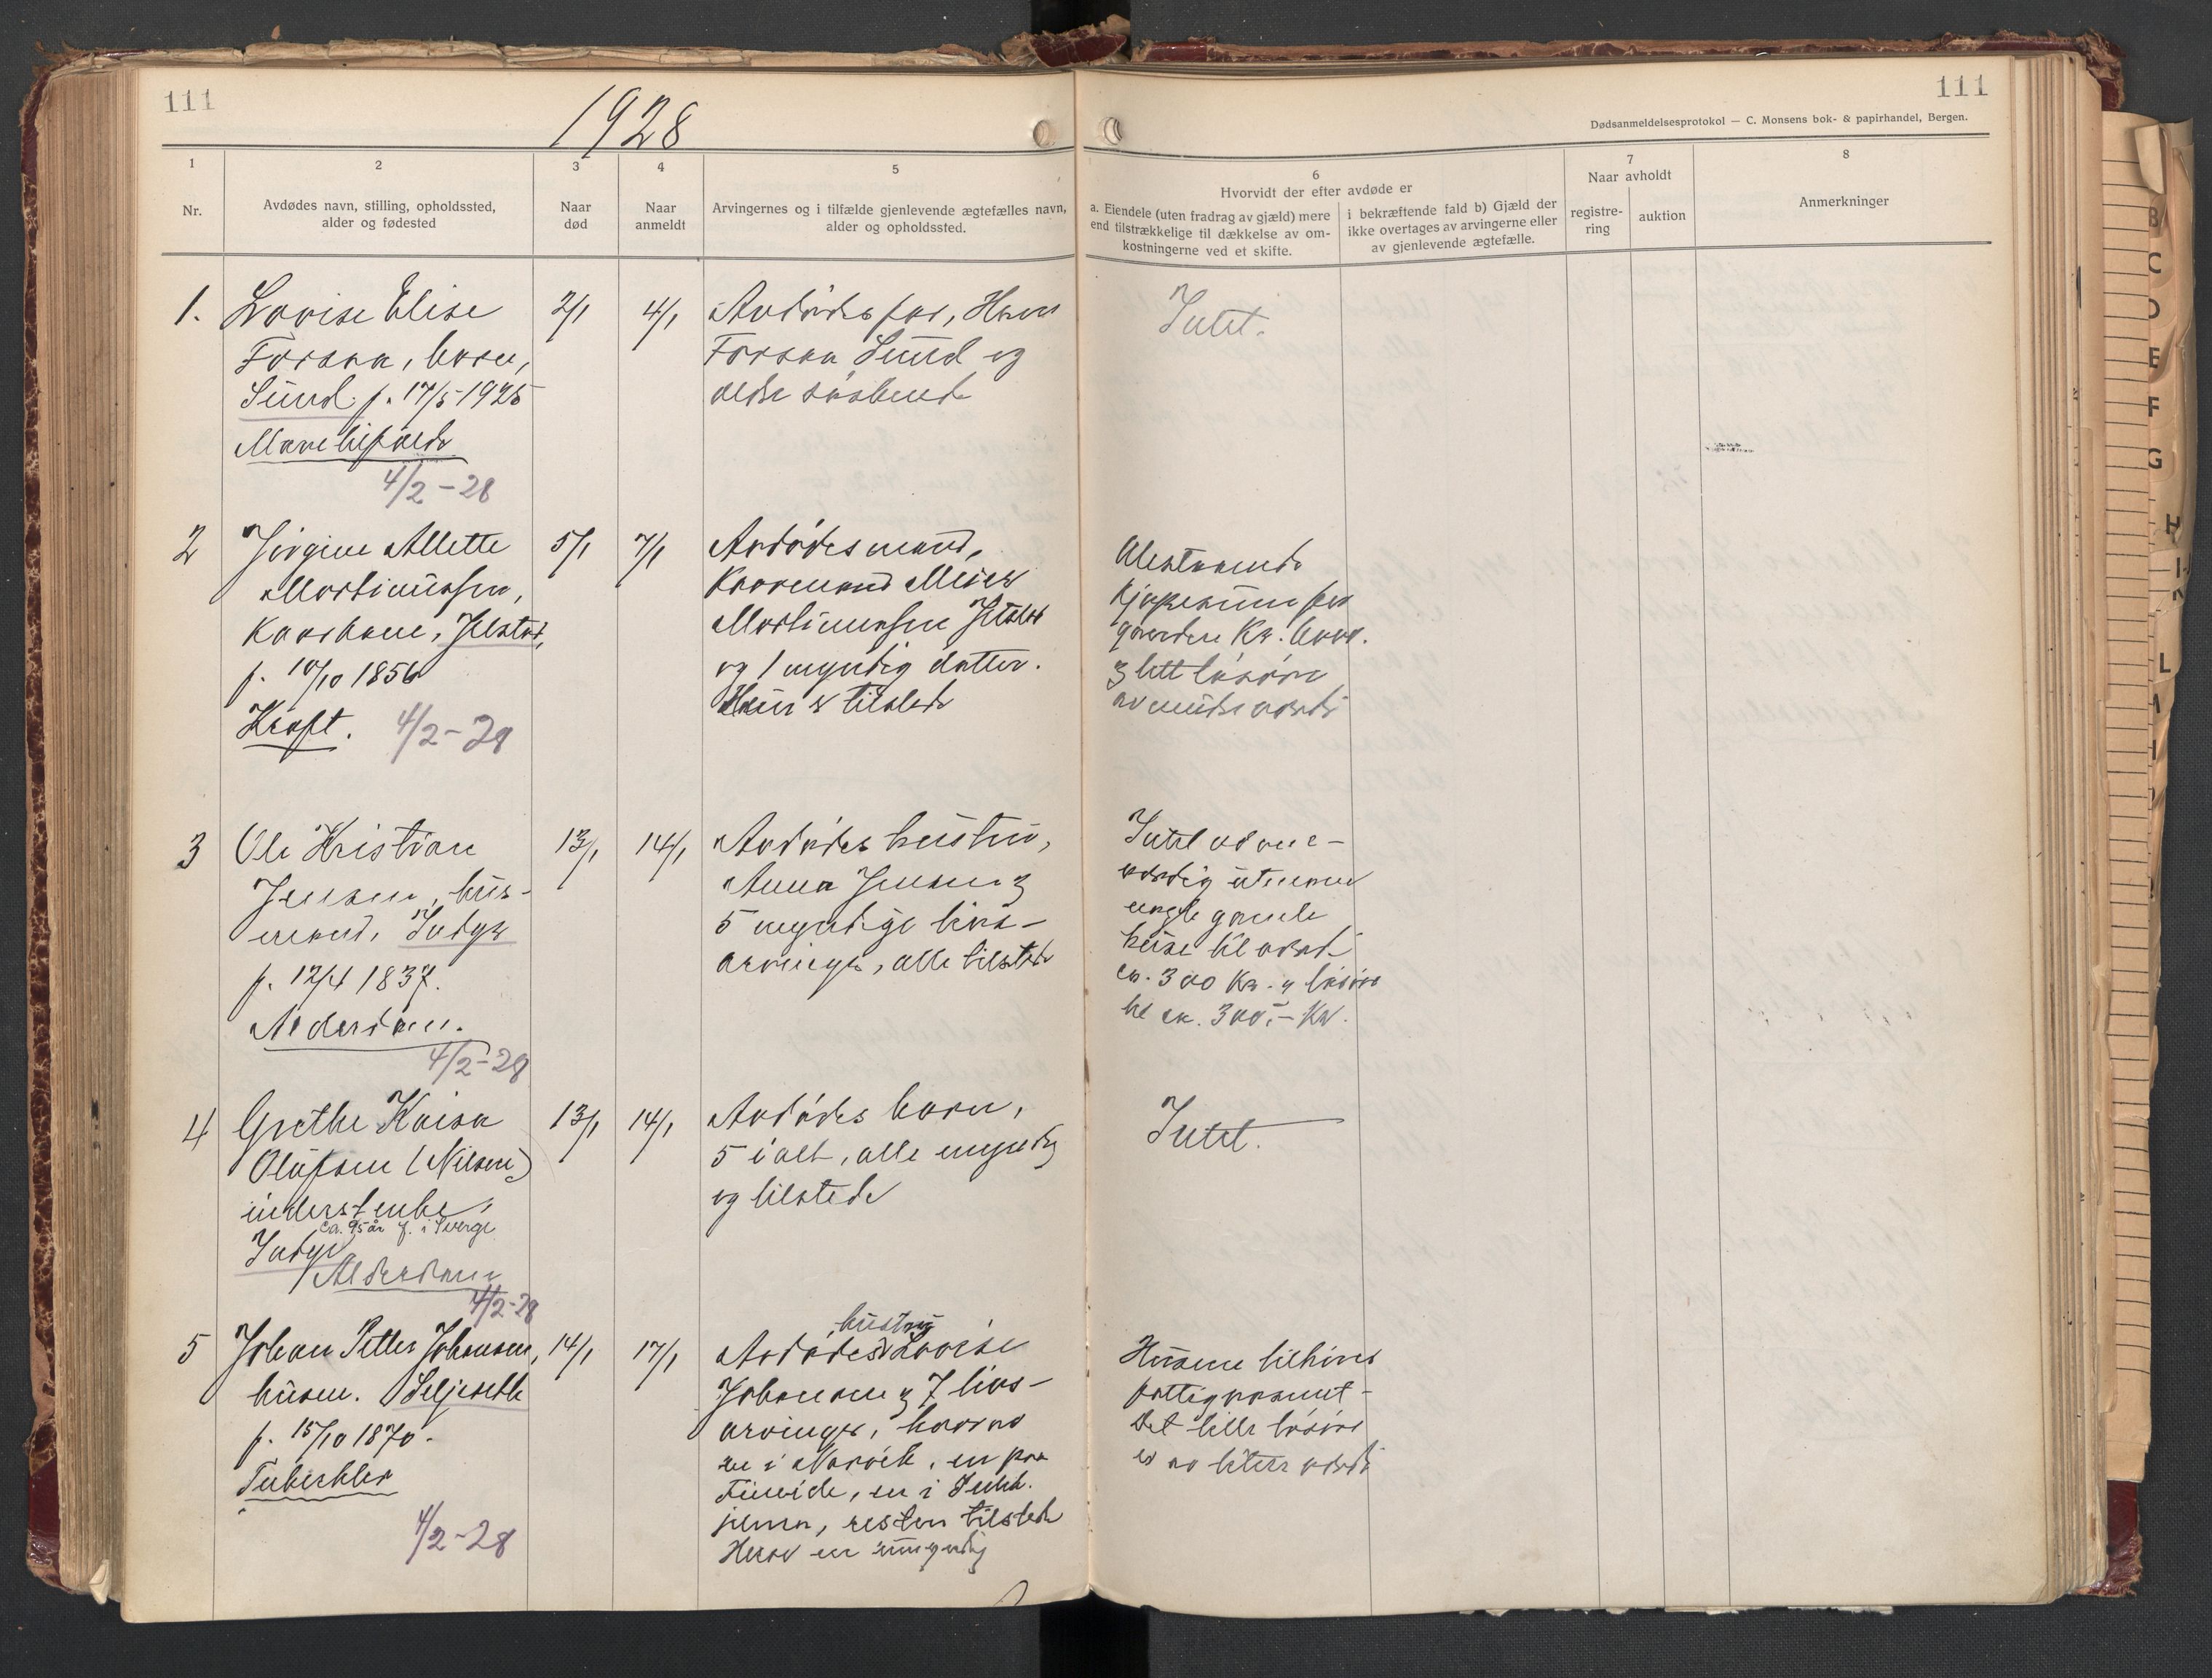 111
1928
111
Dødsanmeldelsesprotokol — C. Monsens bok- & papirhandel, Bergen.
1
Nr.
2
Avdødes navn, stilling, opholdssted,
alder og fødested
3
Naar
død
4
Naar
anmeldt
5
Arvingernes og i tilfælde gjenlevende ægtefælles navn,
alder og opholdssted.
6
Hvorvidt der efter avdøde er
a. Eiendele (uten fradrag av gjæld) mere
end tilstrækkelige til dækkelse av om-
kostningerne ved et skifte.
i bekræftende fald b) Gjæld der
ikke overtages av arvingerne eller
av gjenlevende ægtefælle.
7
Naar avholdt
registre-
ring
auktion
8
Anmerkninger
1.
Lovise Elise
Forsaa, barn,
Sund f. 17/5 1925
4/2-28
2/1
4/1
Avdødes far, Hans
Forsaa Sund og
søskende
Intet.
2
Jørgine Allette
Mortinussen,
Jelstad,
f. 10/10 1856
Kræft.
4/2-28
5/1
7/1
Avdødes mand,
Kaarmand Meier
Mortinussen Jelstad
og 1 myndig datter.
Hun er tilstede
Kjøpesum for
gaarden Kr.
& litt løsøre
av mindre værdi
3
Ole Kristian
Jensen, hus-
mand, Indyr
f. 12/4 1837.
Alderdom.
4/2-28
13/1
14/1
Avdødes hustru,
Anna Jensen &
5 myndige livs-
arvinger, alle tilstede
Intet av ne-
værdig utenom
nogle gamle
huse til værdi
ca. 300 Kr. & løsøre
til ca. 300,- Kr.
4
Grethe Kaisa
Olufsen (Nilsen)
inderstenke,
ca. 95 år f. i Sverge
Indyr
Alderdom
4/2-28
13/1
14/1
Avdødes barn,
5 i alt, alle myndig
og tilstede
Intet.
5
Johan Petter Johansen,
husm. Seljeseth
f. 15/10 1870.
Tuberkler
4/2-28
14/1
17/1
hustru
Avdødes Lovise
Johansen & 7 livs-
arvinger, hvorav
en i Narvik, en paa
Finvide, en i Sund-
resten tilstede
Herav en umyndig
Husene tilhører
fattigvæsenet-
Det lille løsøre
er av liten værdi